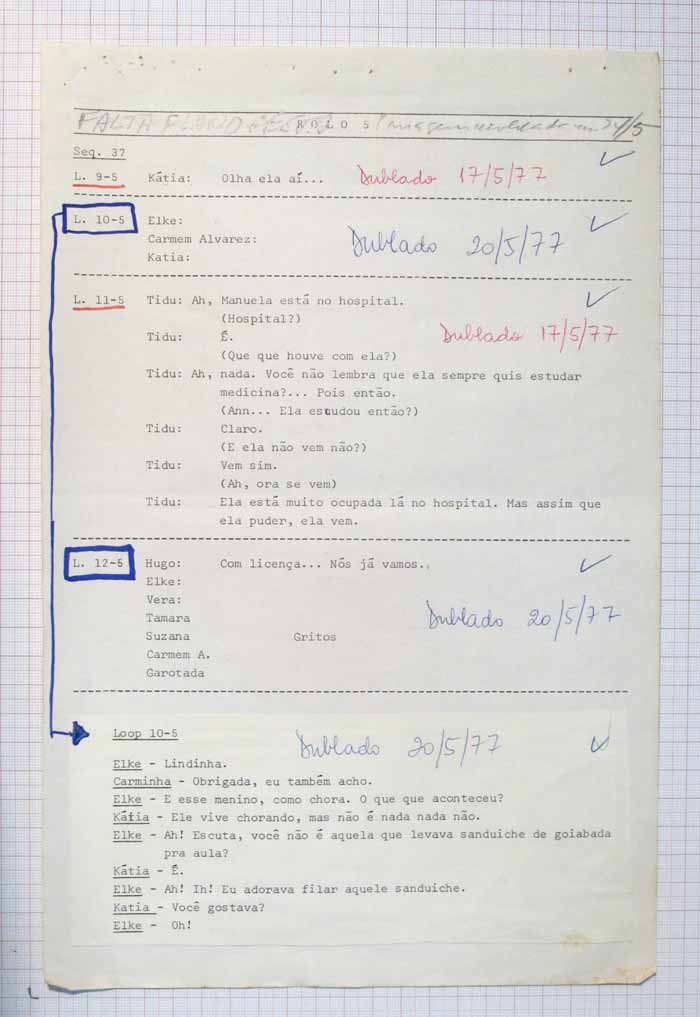 FALTA
ROLO 5
24/5
Seq. 37
L. 9-5 Kátia: Olha ela aí... Dublado 17/5/77
L. 10-5 Elke:
Carmem Alvarez: Dublado 20/5/77
Katia:
L. 11-5 Tidu: Ah, Manuela está no hospital.
(Hospital?)
Tidu: É. Dublado 17/5/77
(Que que houve com ela?)
Tidu: Ah, nada. Você não lembra que ela sempre quis estudar
medicina?... Pois então.
(Ann... Ela estudou então?)
Tidu: Claro.
(E ela não vem não?)
Tidu: Vem sim.
(Ah, ora se vem)
Tidu: Ela está muito ocupada lá no hospital. Mas assim que
ela puder, ela vem.
L. 12-5 Hugo: Com licença... Nós já vamos..
Elke:
Vera:
Tamara Dublado 20/5/77
Suzana Gritos
Carmem A.
Garotada
Loop 10-5 Dublado 20/5/77
Elke - Lindinha.
Carminha - Obrigada, eu também acho.
Elke - E esse menino, como chora. O que que aconteceu?
Kátia - Ele vive chorando, mas não é nada nada não.
Elke - Ah! Escuta, você não é aquela que levava sanduiche de goiabada
pra aula?
Kátia - É.
Elke - Ah! Ih! Eu adorava filar aquele sanduiche.
Katia - Você gostava?
Elke - Oh!